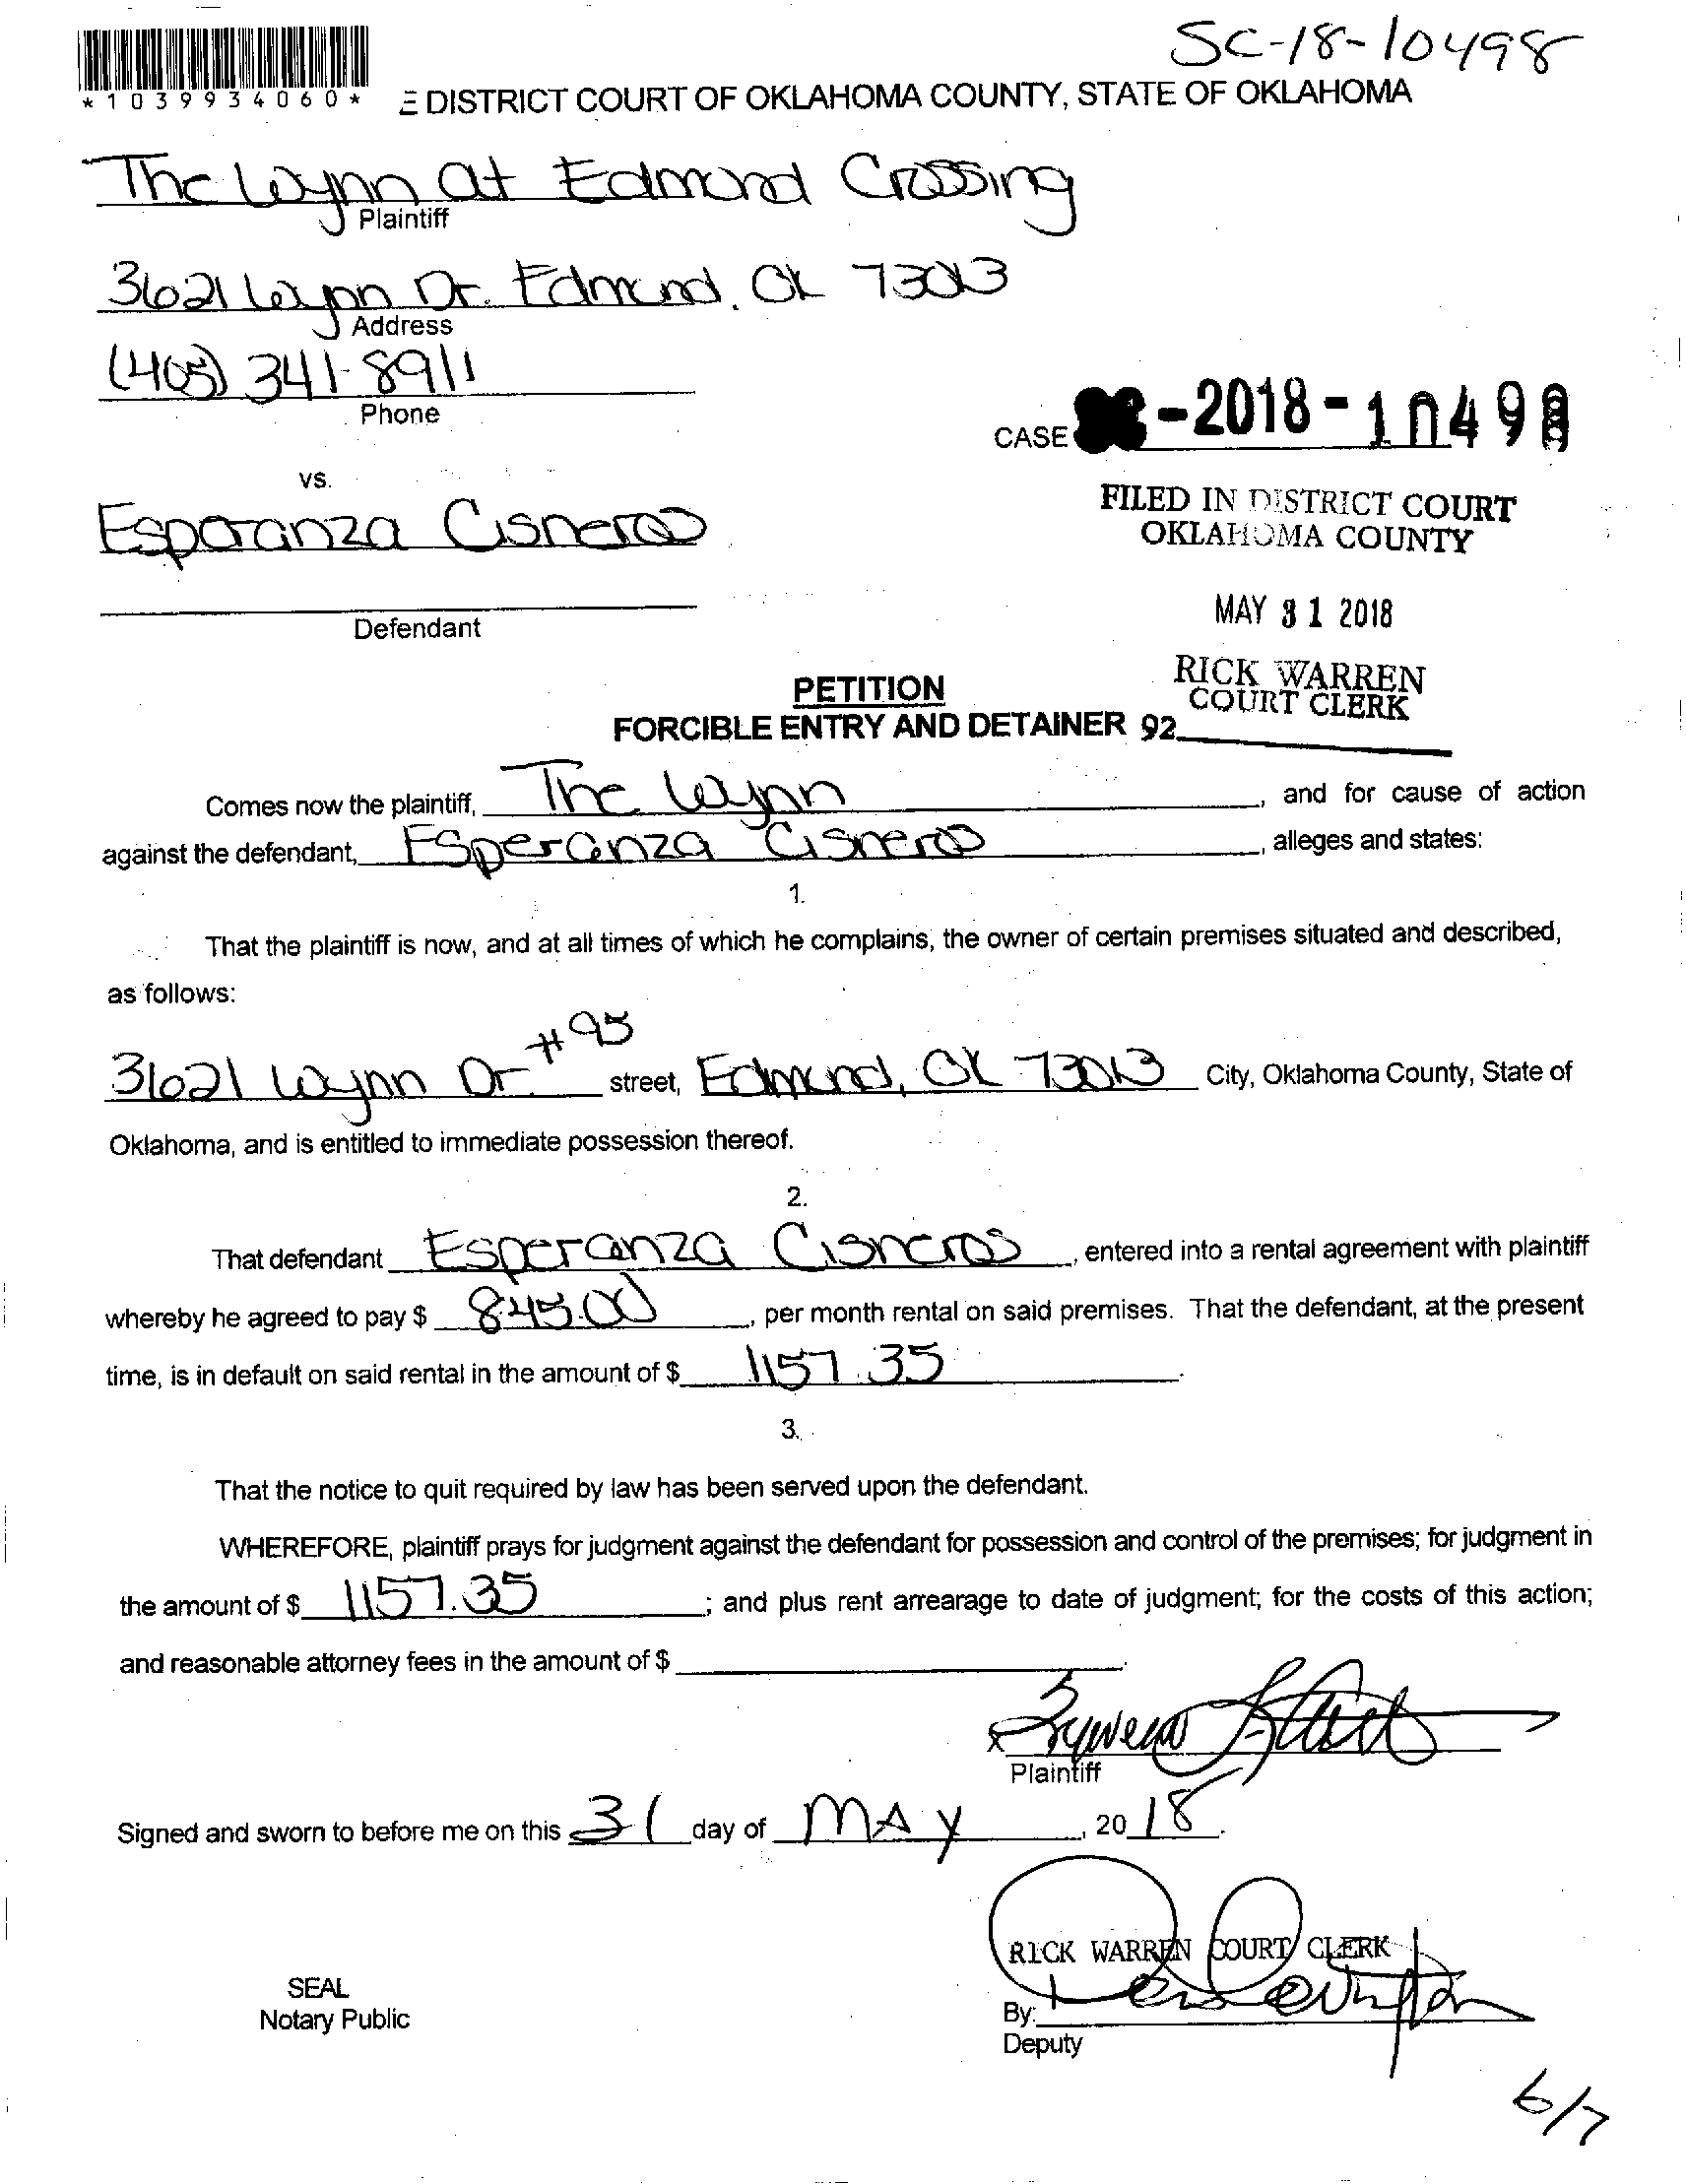 SC-18-10498
*1039934060*
E DISTRICT COURT OF OKLAHOMA COUNTY, STATE OF OKLAHOMA
The Wynn at Edmond Crossing
Plaintiff
3621 Wynn Dr. Edmond, OK 73013
Address
(405) 341-8911
Phone
CASE -2018-10498
vs.
FILED IN DISTRICT COURT
OKLAHOMA COUNTY
Esperanza Cisneros
MAY 31 2018
Defendant
RICK WARREN
COURT CLERK
PETITION
FORCIBLE ENTRY AND DETAINER 92
Comes now the plaintiff, The Wynn, and for cause of action
against the defendant, Esperanza Cisneros, alleges and states:
1.
That the plaintiff is now, and at all times of which he complains, the owner of certain premises situated and described,
as follows:
3621 Wynn Dr. #95 street, Edmond, OK 73013 City, Oklahoma County, State of
Oklahoma, and is entitled to immediate possession thereof.
2.
That defendant Esperanza Cisneros, entered into a rental agreement with plaintiff
whereby he agreed to pay $ 845.00, per month rental on said premises. That the defendant, at the present
time, is in default on said rental in the amount of $ 1157.35.
3.
That the notice to quit required by law has been served upon the defendant.
WHEREFORE, plaintiff prays for judgment against the defendant for possession and control of the premises; for judgment in
the amount of $ 1157.35; and plus rent arrearage to date of judgment; for the costs of this action;
and reasonable attorney fees in the amount of $
Plaintiff
Signed and sworn to before me on this 31 day of MAY, 2018.
RICK WARREN COURT CLERK
SEAL
Notary Public
By:
Deputy
6/7